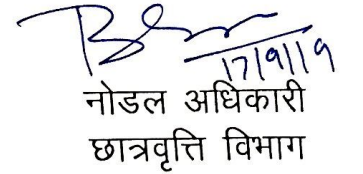 17/9/19
नोडल अधिकारी
छात्रवृत्ति विभाग